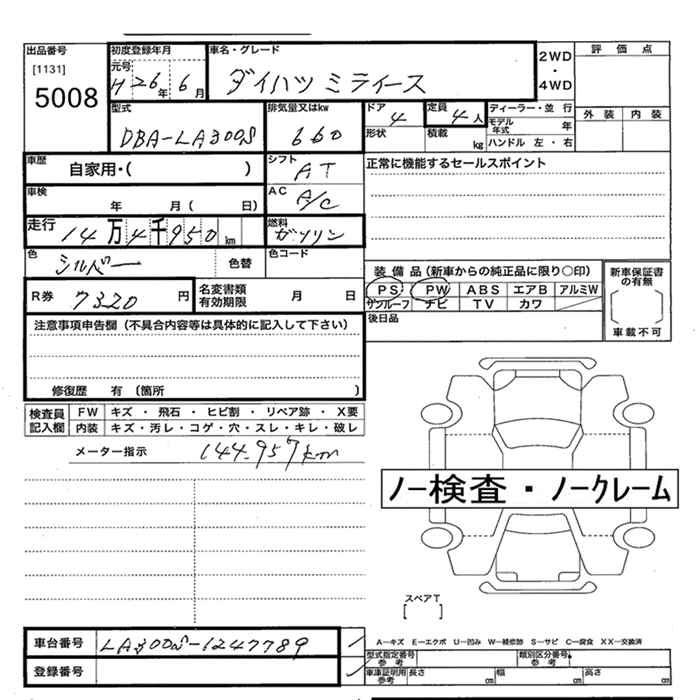 出品番号
[1131]
5008
初度登録年月
元号
H 26年 6月
車名・グレード
ダイハツ ミライース
2WD
・
4WD
評価点
外装 内装
型式
DBA-LA300S
排気量又はkw
660
ドア
4
形状
定員
4人
積載
kg
ディーラー・並行
モデル年式 年
ハンドル 左・右
車歴
自家用・( )
シフト
AT
正常に機能するセールスポイント
車検
年 月( 日)
AC
A/C
走行
14万4千950km
燃料
ガソリン
色
シルバー
色替
色コード
R券
7320円
名変書類
有効期限
月 日
装備品(新車からの純正品に限り○印)
PS PW ABS エアB アルミW
サンルーフ ナビ TV カワ
後日品
新車保証書
の有無
車載不可
注意事項申告欄(不具合内容等は具体的に記入して下さい)
修復歴 有(箇所 )
検査員
記入欄
FW キズ・飛石・ヒビ割・リペア跡・X要
内装 キズ・汚レ・コゲ・穴・スレ・キレ・破レ
メーター指示
144.957km
ノー検査・ノークレーム
スペアT
[ ]
車台番号
LA300S-1247789
登録番号
A-キズ E-エクボ U-凹み W-補修跡 S-サビ C-腐食 XX-交換済
型式指定番号
参考
類別区分番号
参考
車庫証明用
参考
長さ cm 幅 cm 高さ cm